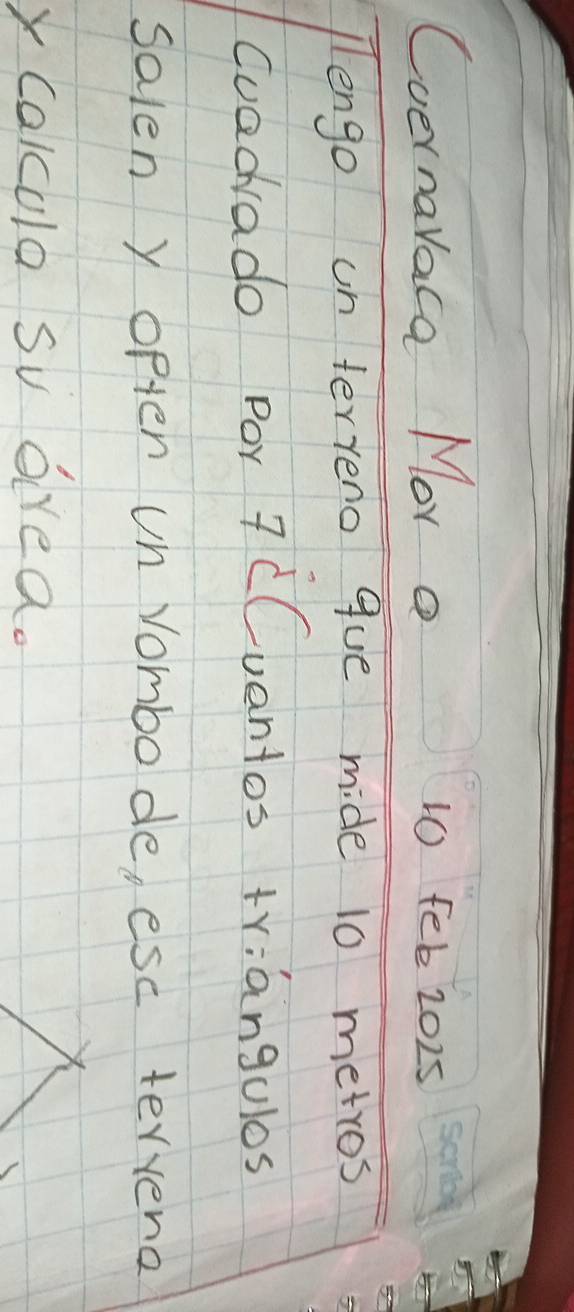 Scribe
Cuernavaca Mor a 10 feb 2025
Tengo un terreno que mide 10 metros
Cuadrado por 7 ¿Cuantos triángulos
Salen y opten un rombo de, ese terreno
y calcula su área.